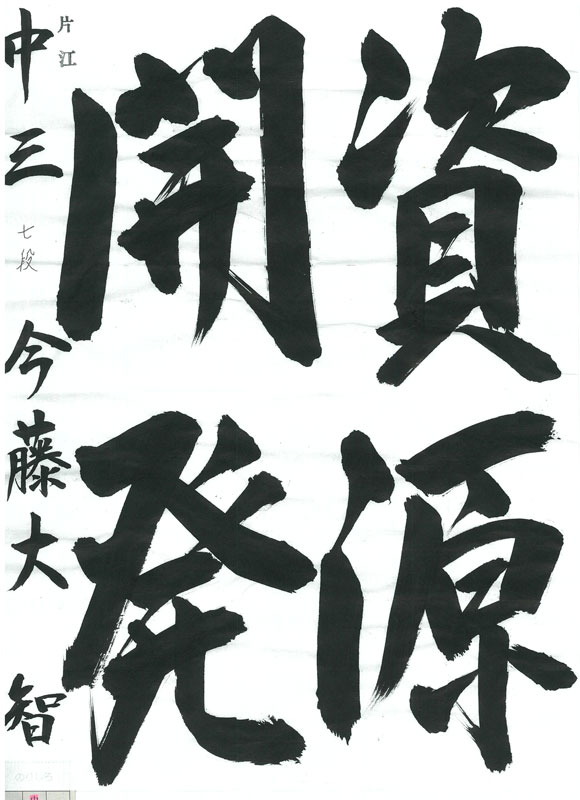 資源
開発
片江
中三 七段 今藤大智
のりしろ